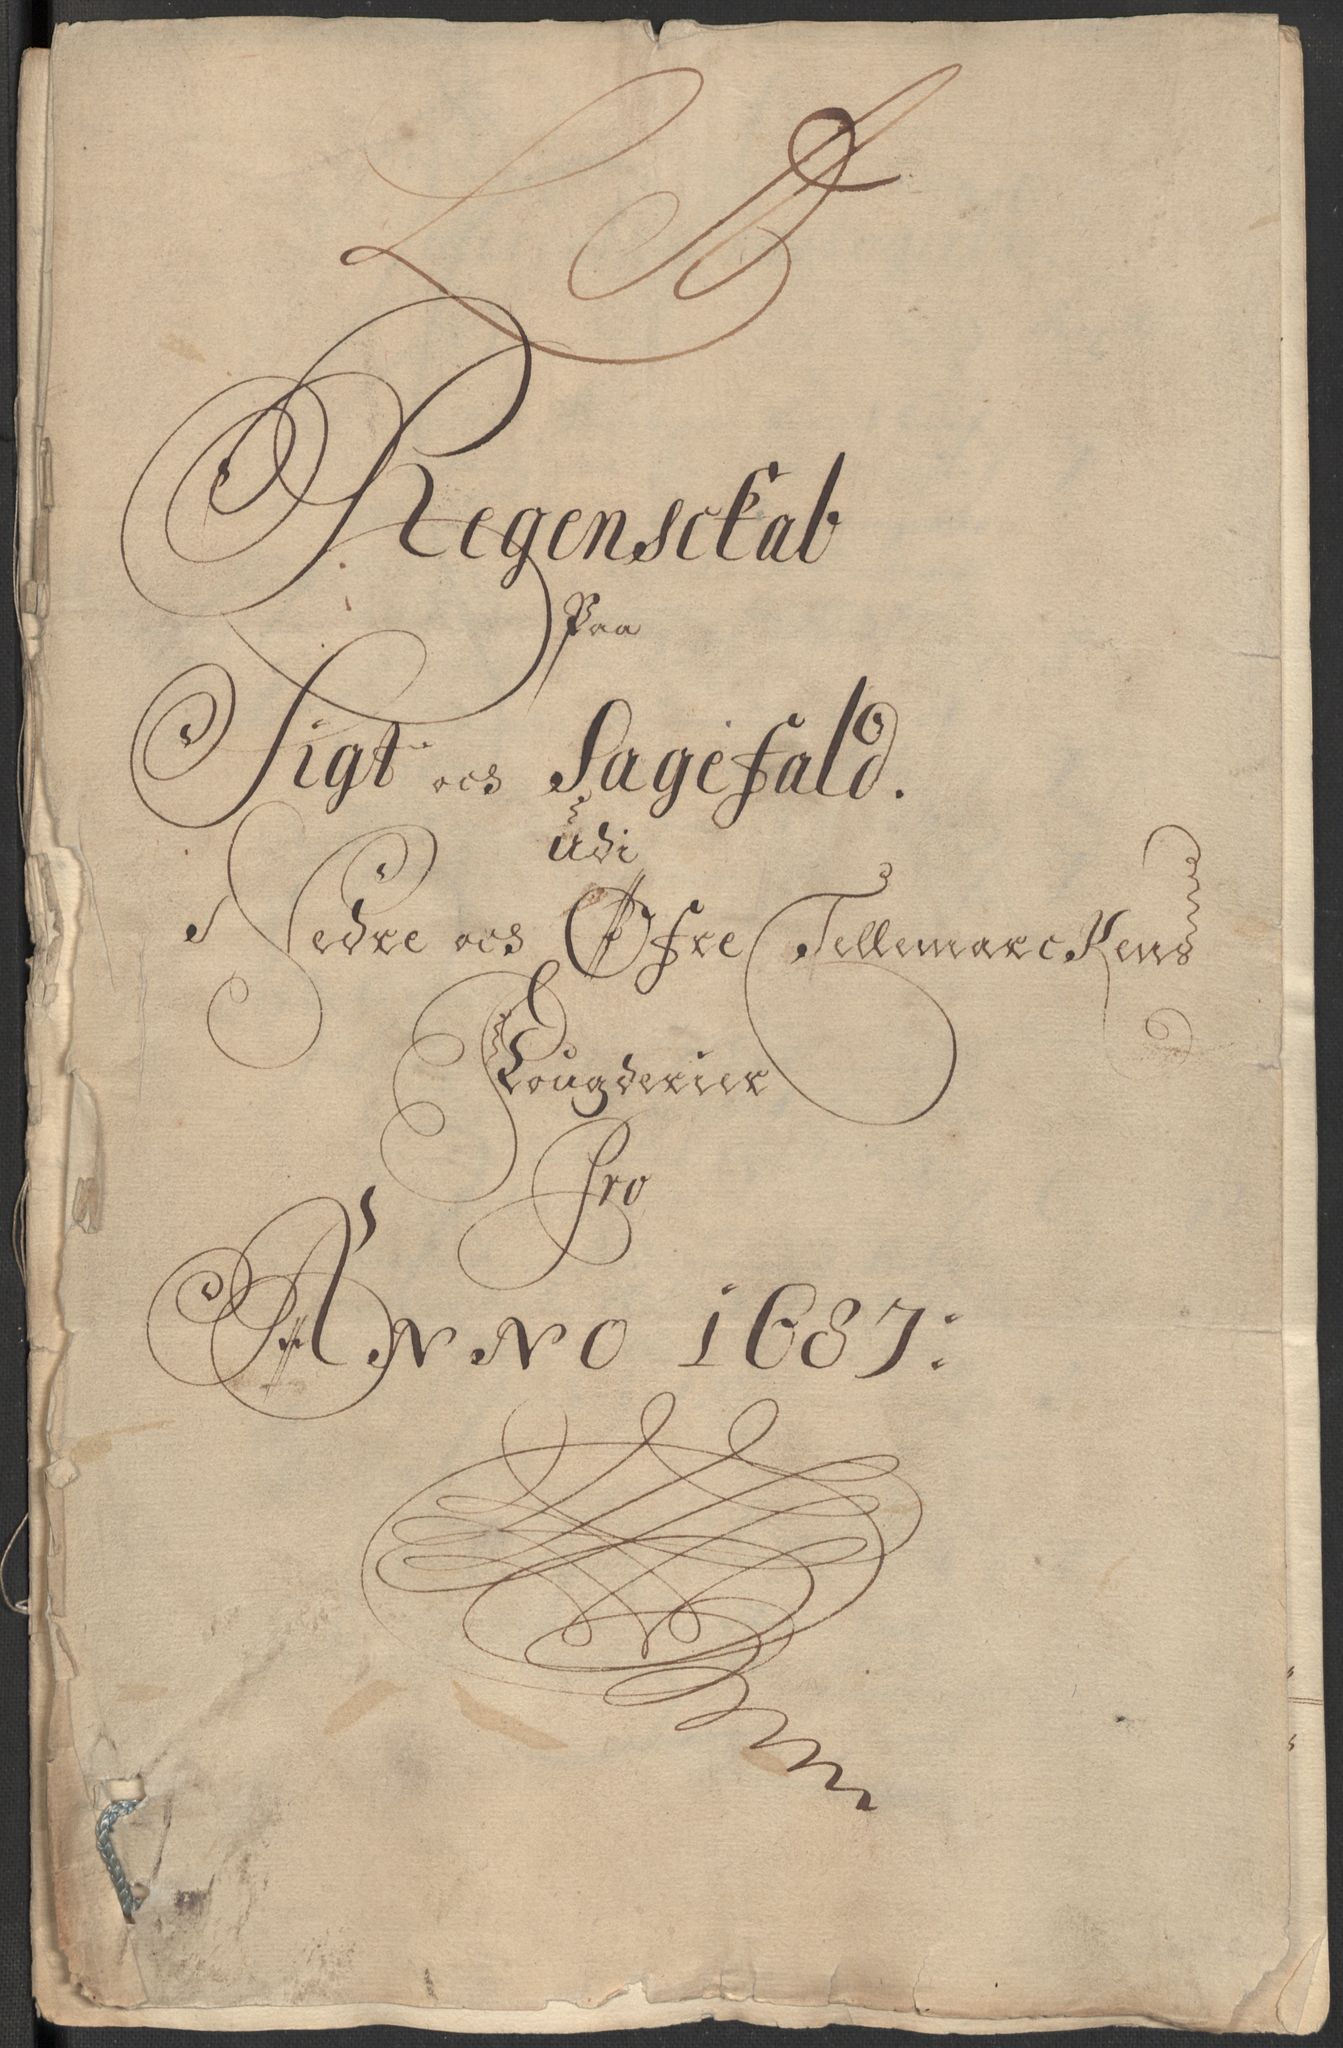 Regensckab
Paa
Sigt och Sagefald.
udi
Nedre och Øfre Tellemarckens
Fougderier
Pro
Anno 1687: